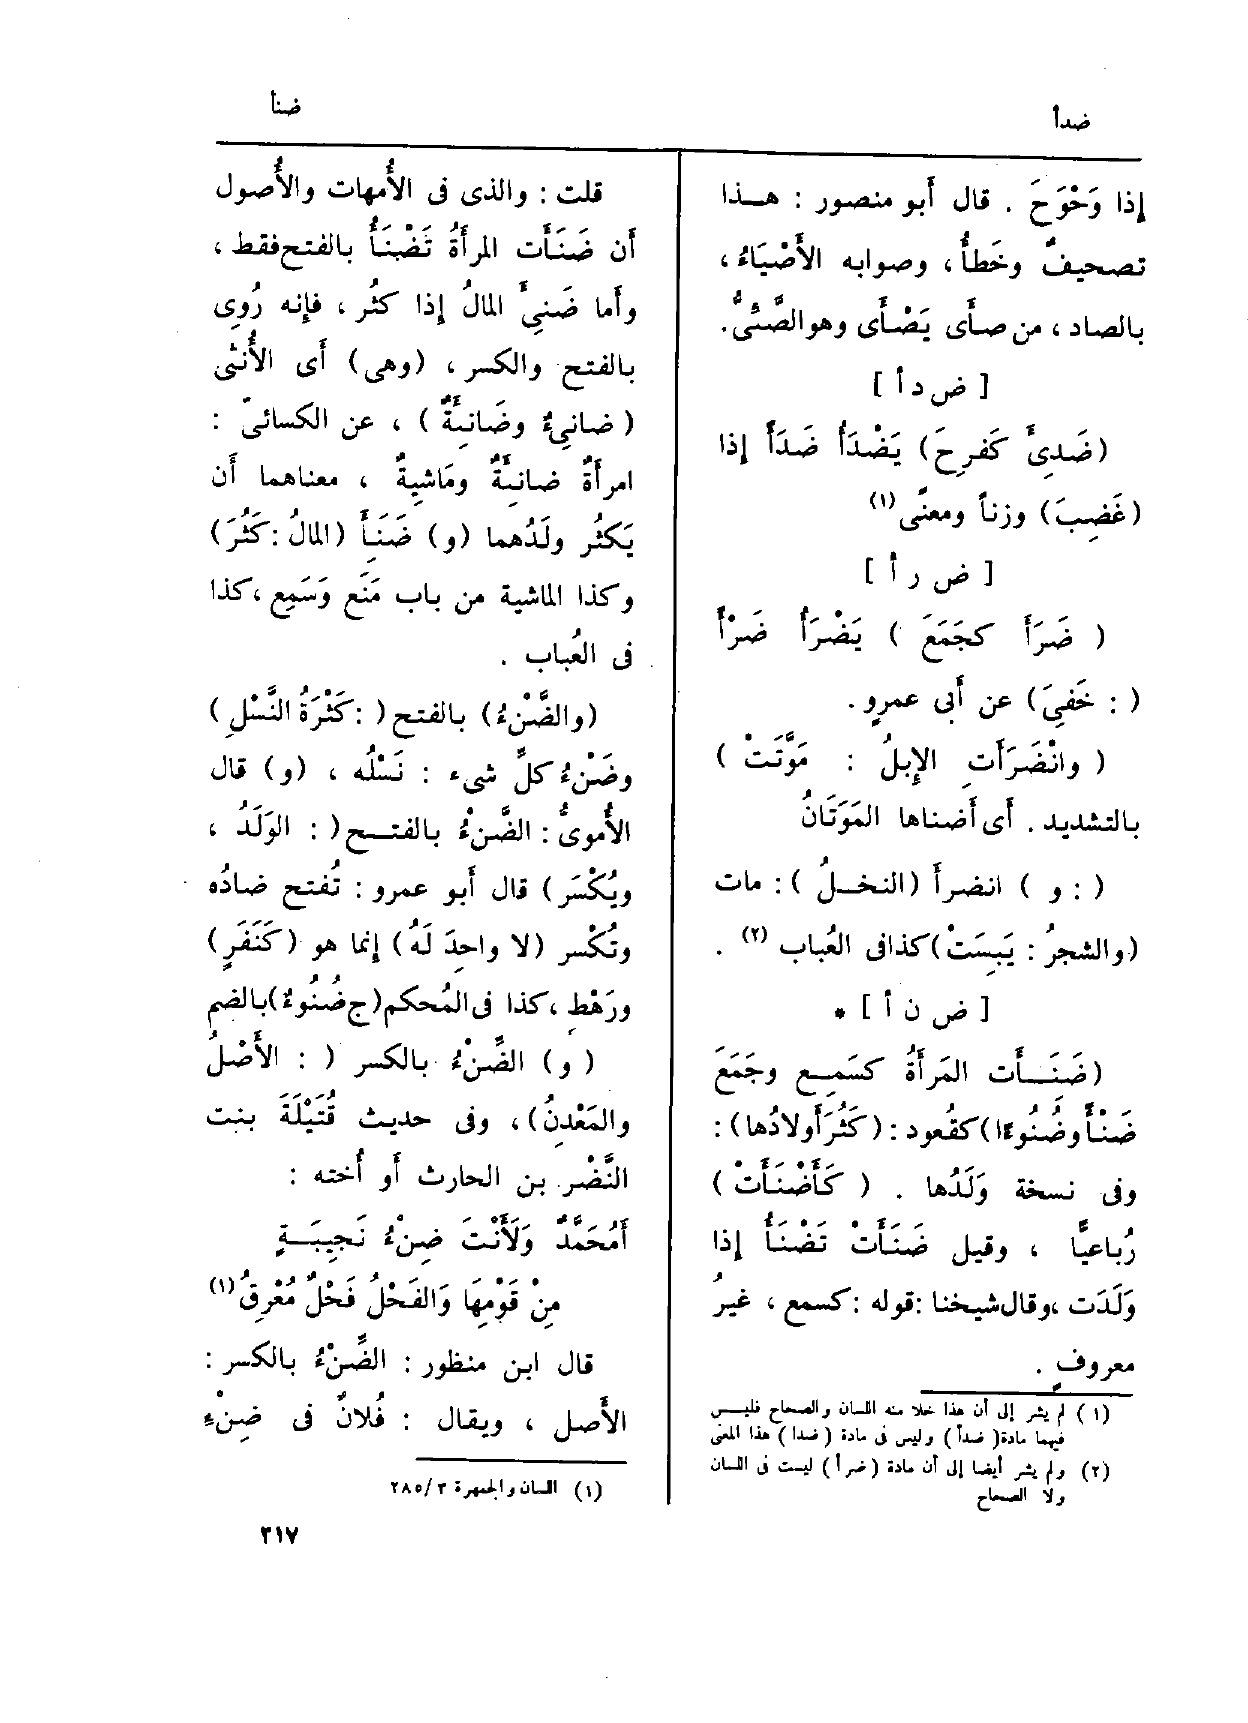 ضدأ
ضنأ
إذا وَحْوَحَ . قال أَبو منصور : هـذا
تصحيفٌ وخَطَأٌ ، وصوابه الأَضْيَاءُ ،
بالصاد ، من صأَى يَصْأَى وهو الصَّئِىُّ.
[ ض د أ ]
(ضَدِئَ كَفرِحَ) يَضْدَأُ ضَدَأً إذا
(غَضِبَ) وزناً ومعنًى (١)
[ ض ر أ ]
( ضَرَأَ كجَمَعَ ) يَضْرَأُ ضَرْأً
( : خَفِىَ) عن أَبى عمرٍو .
( وانْضَرَأَتِ الإِبلُ : مَوَّتَتْ )
بالتشديد . أَى أَضناها المَوَتَانُ
( : و ) انضرأَ (النخـلُ ) : مات
(والشجرُ : يَبِسَتْ)كذا فى العُباب (٢) .
[ ض ن أ ] *
(ضَنَــأَت المَرأَةُ كسَمِـع وجَمَعَ
ضَنْأً وضُنُوءًا)كقُعود : (كَثُرَ أَولادُها) :
وفى نسخة وَلَدُها . ( كَأَضْنَأَتْ )
رُباعيًّا ، وقيل ضَنَأَتْ تَضْنَأُ إذا
وَلَدَت ،وقال شيخنا :قوله :كسمع ، غيرُ
معروفٍ .
(١) لم يشر إلى أن هذا خلا منه اللسان والصحاح فليس
فيهما مادة( ضدأ ) وليس فى مادة ( ضدا ) هذا المعنى
(٢) ولم يشر أيضا إلى أن مادة ( ضرأ ) ليست فى اللسان
ولا الصحاح
قلت : والذى فى الأُمهات والأُصول
أَن ضَنَأَت المرأَةُ تَضْنَأُ بالفتح فقط ،
وأَما ضَنِئَ المالُ إذا كثُر ، فإِنه رُوِى
بالفتح والكسر ، (وهى) أَى الأُنثى
( ضانِىءٌ وضَانِئَةٌ ) ، عن الكسائىّ :
امرأَةٌ ضانِئَةٌ ومَاشِيةٌ ، معناهما أَن
يَكثُر ولَدُهما (و) ضَنَأَ (المالُ : كَثُرَ)
وكذا الماشية من باب مَنَع وَسَمِع ،كذا
فى العُباب .
(والضَّنْءُ) بالفتح( : كَثْرَةُ النَّسْلِ)
وضَنْءُ كلِّ شىء : نَسْلُه ، (و) قال
الأُموىُّ : الضَّنْءُ بالفتـح( : الوَلَدُ ،
ويُكْسَر) قال أَبو عمرو : تُفتح ضادُه
وتُكْسر (لا واحِدَ لَهُ) إنما هو (كَنَفَرٍ)
ورَهْطٍ ،كذا فى المُحكم(ج ضُنُوءٌ)بالضم
( و) الضِّنْءُ بالكسر ( : الأَصْلُ
والمَعْدِنُ) ، وفى حديث قُتَيْلَةَ بنت
النَّضْر بن الحارث أَو أُخته :
أَمُحَمَّدٌ وَلَأَنْتَ ضِنْءُ نَجِيبَـةٍ
مِنْ قَوْمِهَا وَالفَحْلُ فَحْلٌ مُعْرِقُ (١)
قال ابن منظور : الضِّنْءُ بالكسر :
الأَصل ، ويقال : فُلانٌ فى ضِنْءِ
(١) اللسان والجمهرة ٣/ ٢٨٥
٣١٧